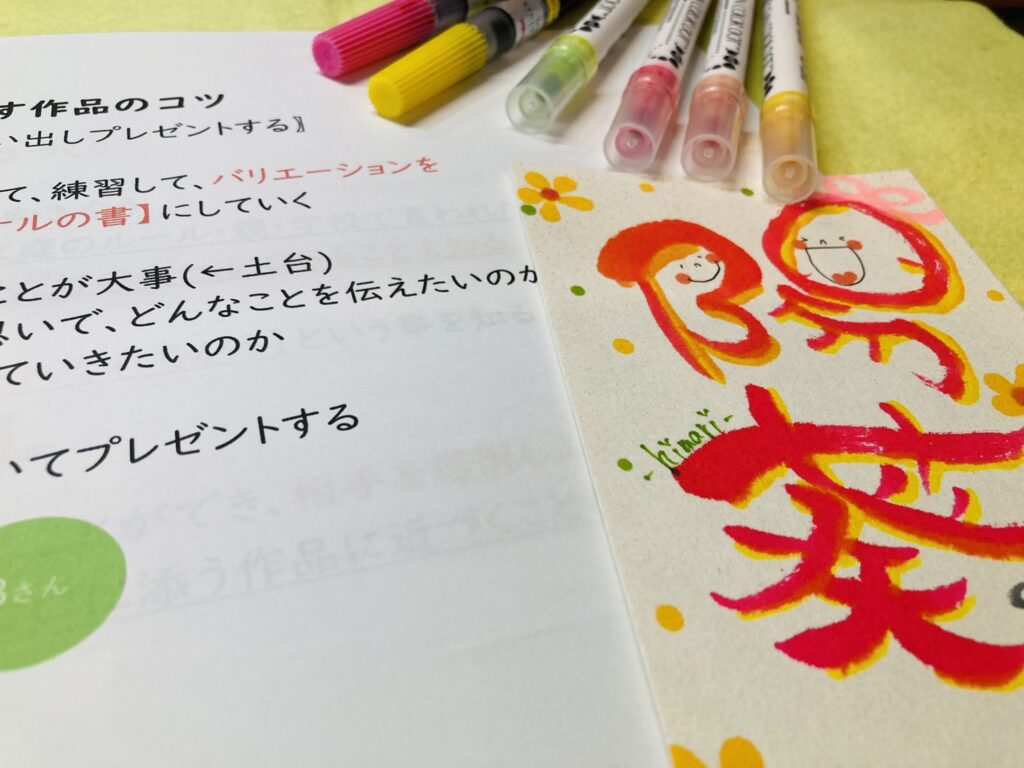 す作品のコツ
い出しプレゼントする〗
て、練習して、バリエーションを
ールの書】にしていく
ことが大事(←土台)
思いで、どんなことを伝えたいのか
ていきたいのか
いてプレゼントする
Bさん
陽
葵
-himari-